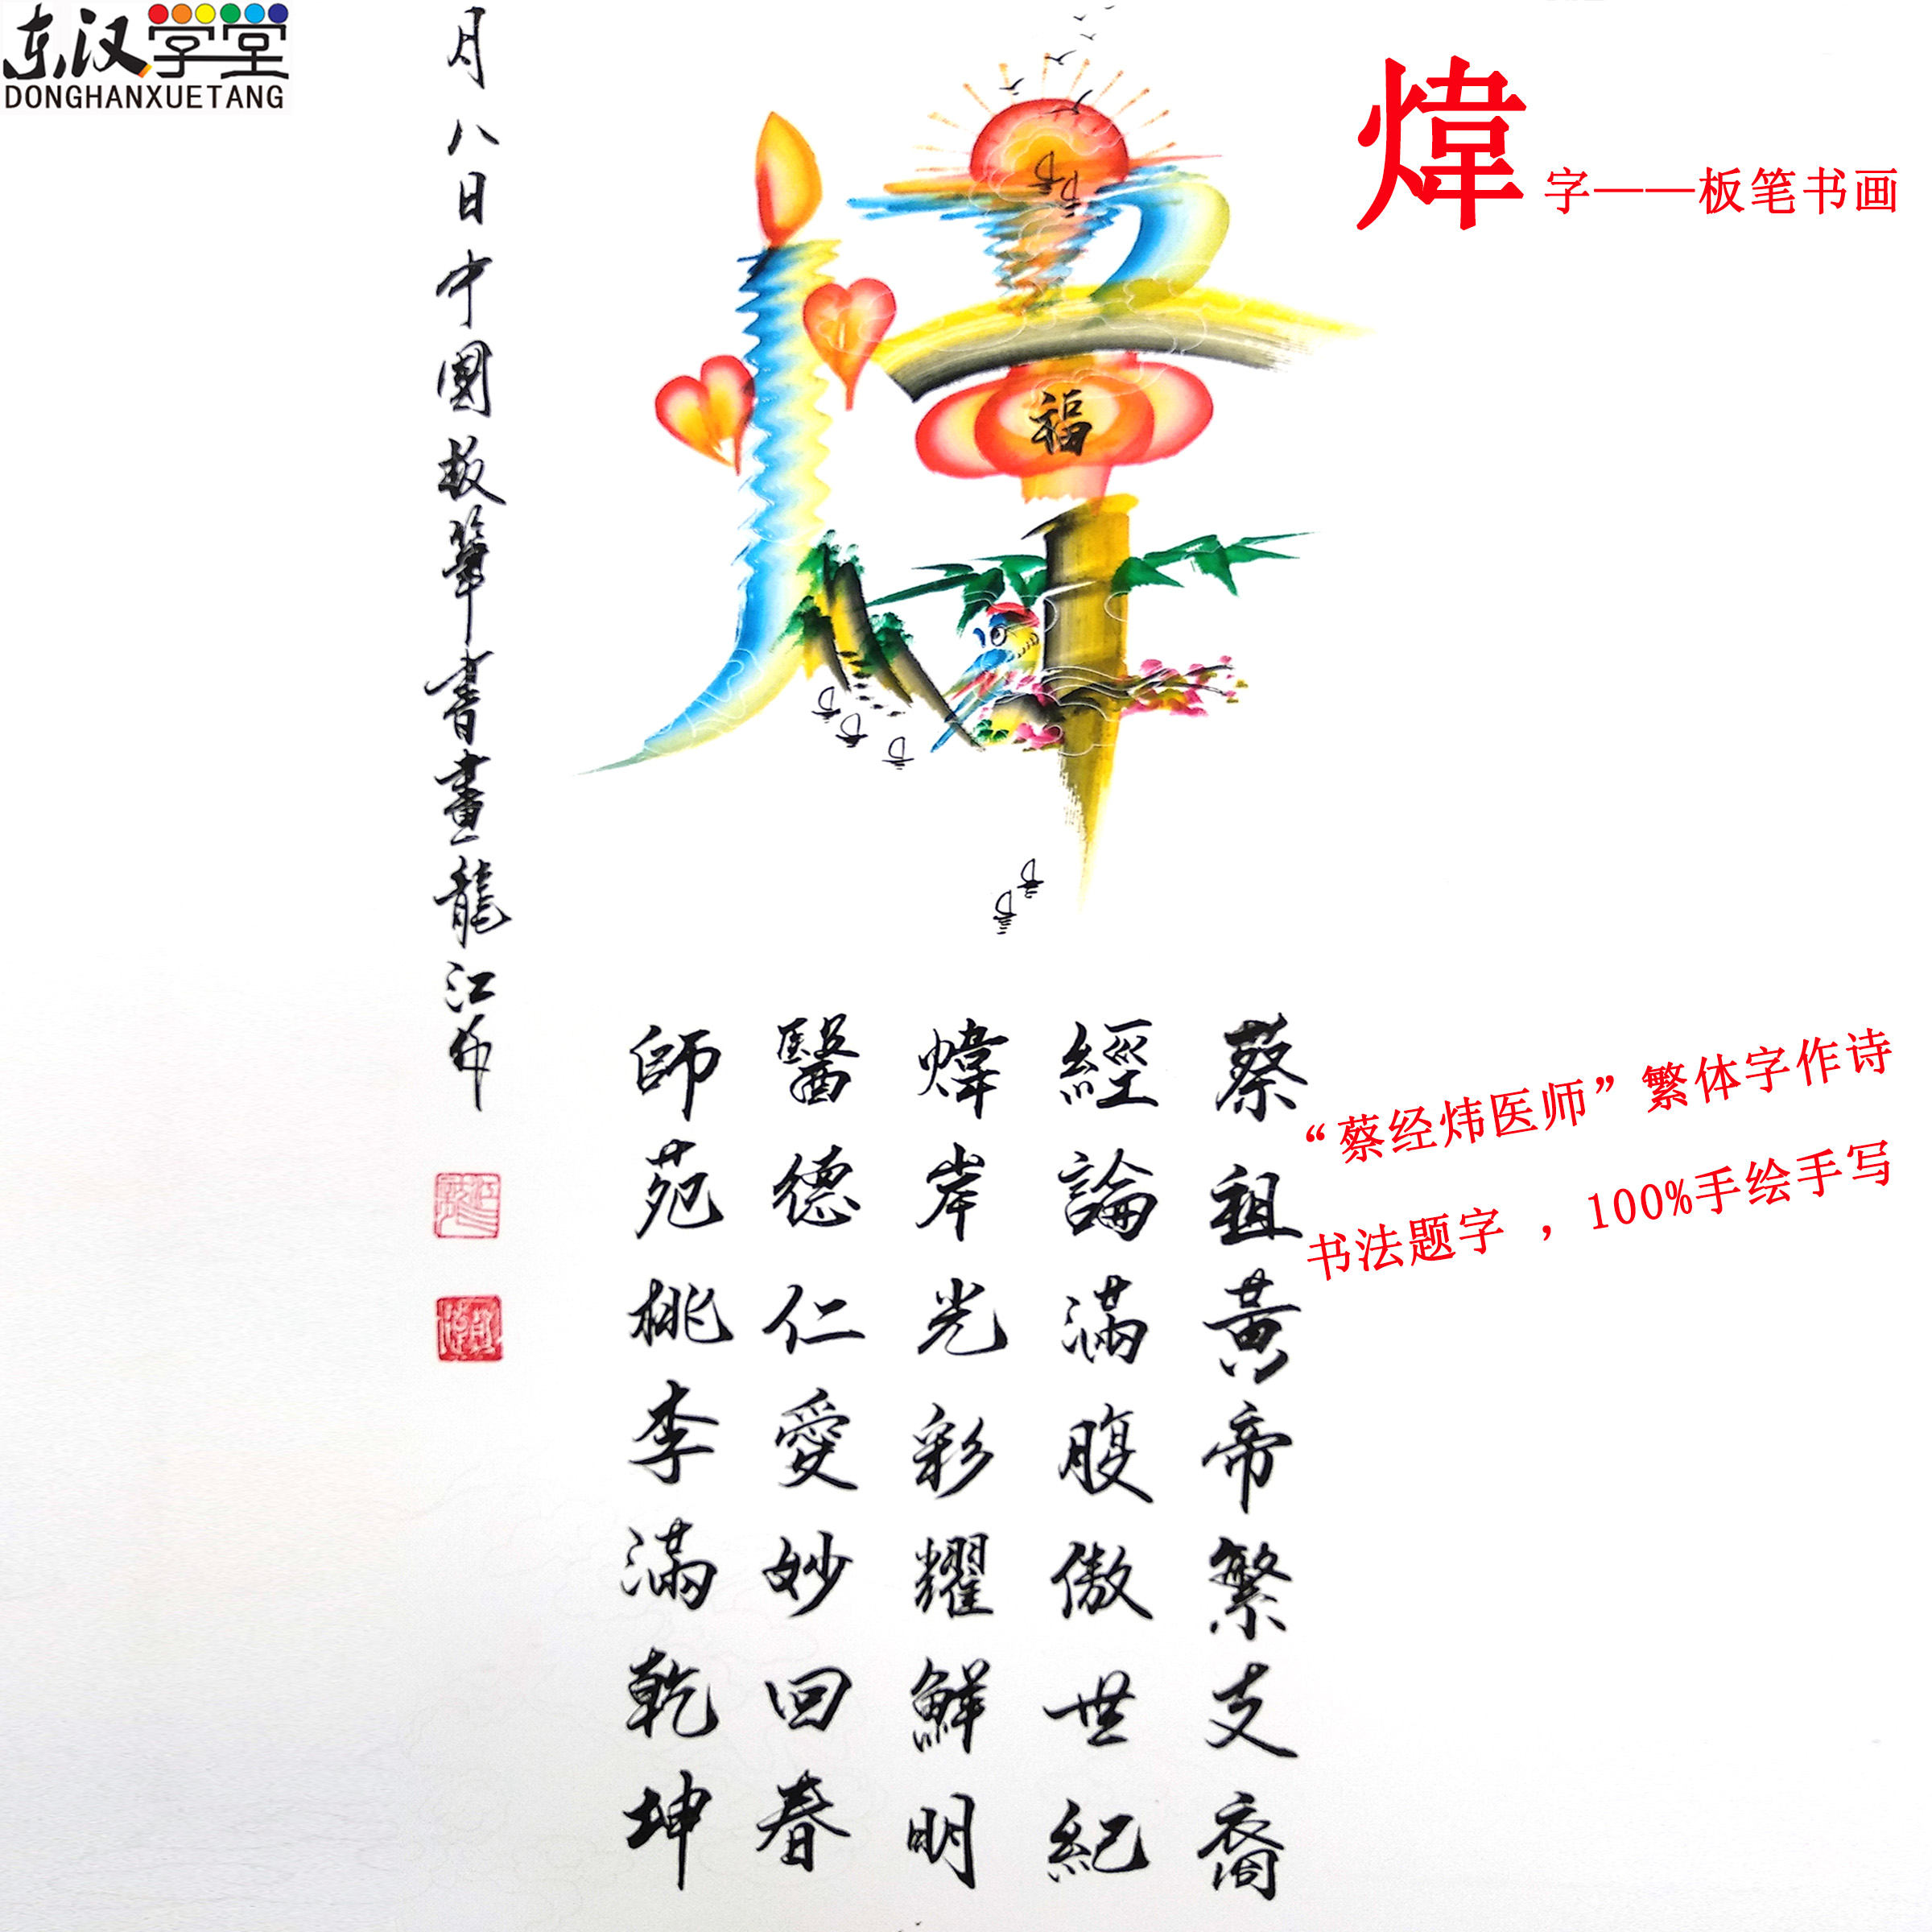 东汉学堂
DONGHANXUETANG
煒字——板笔书画
福
蔡祖黃帝繁支裔
經論滿腹傲世紀
煒岸光彩耀鮮明
醫德仁愛妙回春
師苑桃李滿乾坤
月八日中國板筆書畫龍江
“蔡经炜医师”繁体字作诗
书法题字，100%手绘手写